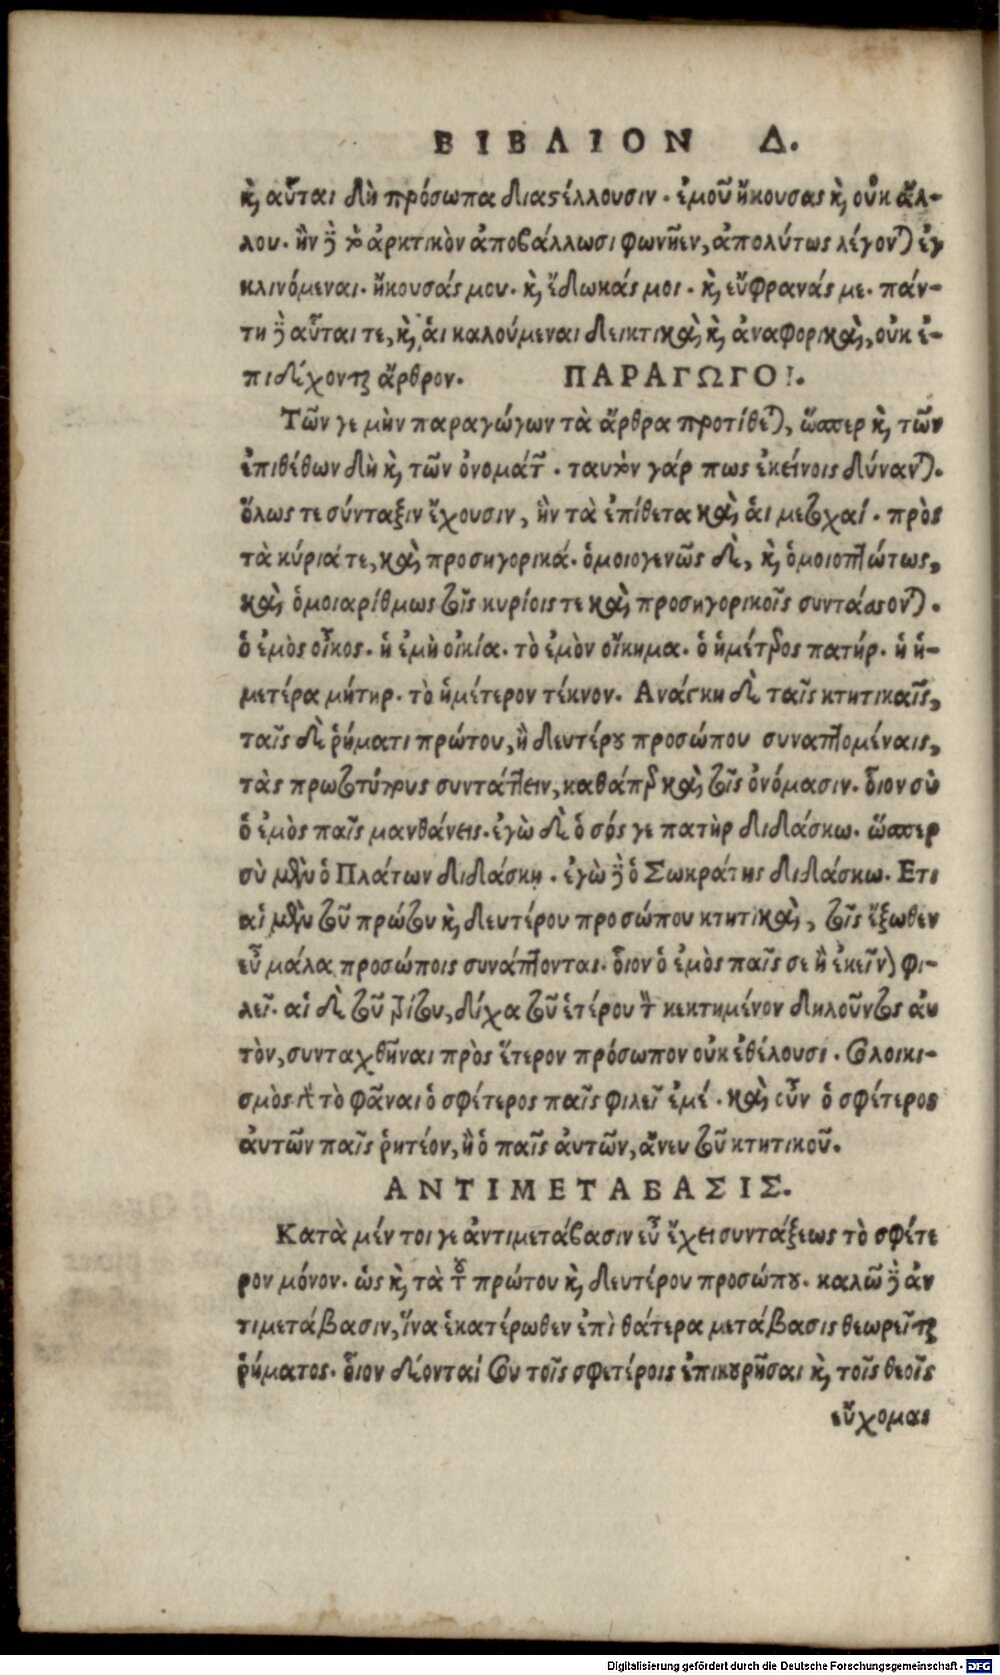 ΒΙΒΛΙΟΝ Δ.
καὶ αὗται δὴ πρόσωπα διαστέλλουσιν. ἐμοῦ ἤκουσας καὶ οὐκ ἄλ-
λου. ἢν δὲ τὸ ἀρκτικὸν ἀποβάλλωσι φωνῆεν, ἀπολύτως λέγονται ἐγ
κλινόμεναι. ἤκουσάς μου. καὶ ἔδωκάς μοι. καὶ εὔφρανάς με. πάν-
τη δὲ αὗταί τε, καὶ ἁι καλούμεναι δεικτικαὶ καὶ ἀναφορικαὶ, οὐκ ἐ-
πιδέχονται ἄρθρον. ΠΑΡΑΓΩΓΟΙ.
Τῶν γε μὴν παραγώγων τὰ ἄρθρα προτίθεται, ὥσπερ καὶ τῶν
ἐπιθέθων δὴ καὶ τῶν ὀνομάτων. ταυτὸν γάρ πως ἐκείνοις δύνανται.
ὅλως τε σύνταξιν ἔχουσιν, ἣν τὰ ἐπίθετα καὶ ἁι μετοχαί. πρὸς
τὰ κύριά τε, καὶ προσηγορικά. ὁμοιογενῶς δὲ, καὶ ὁμοιοπτώτως,
καὶ ὁμοιαρίθμως τοῖς κυρίοις τε καὶ προσηγορικοῖς συντάσσονται.
ὁ ἐμὸς οἶκος. ἡ ἐμὴ οἰκία. τὸ ἐμὸν οἴκημα. ὁ ἡμέτερος πατήρ. ἡ ἡ-
μετέρα μήτηρ. τὸ ἡμέτερον τέκνον. Ανάγκη δὲ ταῖς κτητικαῖς,
ταῖς δὲ ῥήματι πρώτου, ἢ δευτέρου προσώπου συναπτομέναις,
τὰς πρωτοτύπους συντάττειν, καθάπερ καὶ τοῖς ὀνόμασιν. οἷον σὺ
ὁ ἐμὸς παῖς μανθάνεις. ἐγὼ δὲ ὁ σός γε πατὴρ διδάσκω. ὥσπερ
σὺ μὲν ὁ Πλάτων διδάσκῃ. ἐγὼ δὲ ὁ Σωκράτης διδάσκω. Ετι
αἱ μὲν τοῦ πρώτου καὶ δευτέρου προσώπου κτητικαὶ, τοῖς ἔξωθεν
εὖ μάλα προσώποις συνάπτονται. οἷον ὁ ἐμὸς παῖς σε ἢ ἐκεῖνον φι-
λεῖ. αἱ δὲ τοῦ τρίτου, δίχα τοῦ ἑτέρου τὸν κεκτημένον δηλοῦντος αὐ
τὸν, συνταχθῆναι πρὸς ἕτερον πρόσωπον οὐκ ἐθέλουσι. σολοικι-
σμὸς γὰρ τὸ φᾶναι ὁ σφέτερος παῖς φιλεῖ ἐμέ. καὶ οὖν ὁ σφέτερος
ἀυτῶν παῖς ῥητέον, ἢ ὁ παῖς ἀυτῶν, ἄνευ τοῦ κτητικοῦ.
ΑΝΤΙΜΕΤΑΒΑΣΙΣ.
Κατὰ μέν τοι γε ἀντιμετάβασιν εὖ ἔχει συντάξεως τὸ σφέτε
ρον μόνον. ὡς καὶ τὰ τοῦ πρώτου καὶ δευτέρου προσώπου. καλῶ δὲ ἀν
τιμετάβασιν, ἵνα ἑκατέρωθεν ἐπὶ θάτερα μετάβασις θεωρεῖται
ῥήματος. οἷον δέονταί σου τοῖς σφετέροις ἐπικουρῆσαι καὶ τοῖς θεοῖς
εὔχομαι
Digitalisierung gefördert durch die Deutsche Forschungsgemeinschaft - DFG